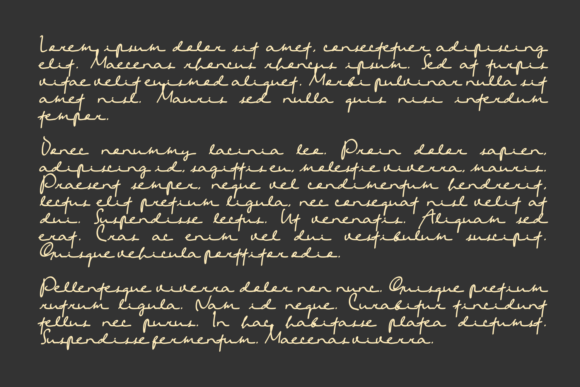 Lorem ipsum dolor sit amet, consectetuer adipiscing
elit. Maecenas rhoncus rhoncus ipsum. Sed at turpis
vitae velit euismod aliquet. Morbi pulvinar nulla sit
amet nisl. Mauris sed nulla quis nisi interdum
tempor.
Donec nonummy lacinia leo. Proin dolor sapien,
adipiscing id, sagittis eu, molestie viverra, mauris.
Praesent semper, neque vel condimentum hendrerit,
lectus elit pretium ligula, nec consequat nisl velit at
dui. Suspendisse lectus. Ut venenatis. Aliquam sed
erat. Cras ac enim vel dui vestibulum suscipit.
Quisque vehicula porttitor odio.
Pellentesque viverra dolor non nunc. Quisque pretium
rutrum ligula. Nam id neque. Curabitur tincidunt
tellus nec purus. In hac habitasse platea dictumst.
Suspendisse fermentum. Maecenas viverra.